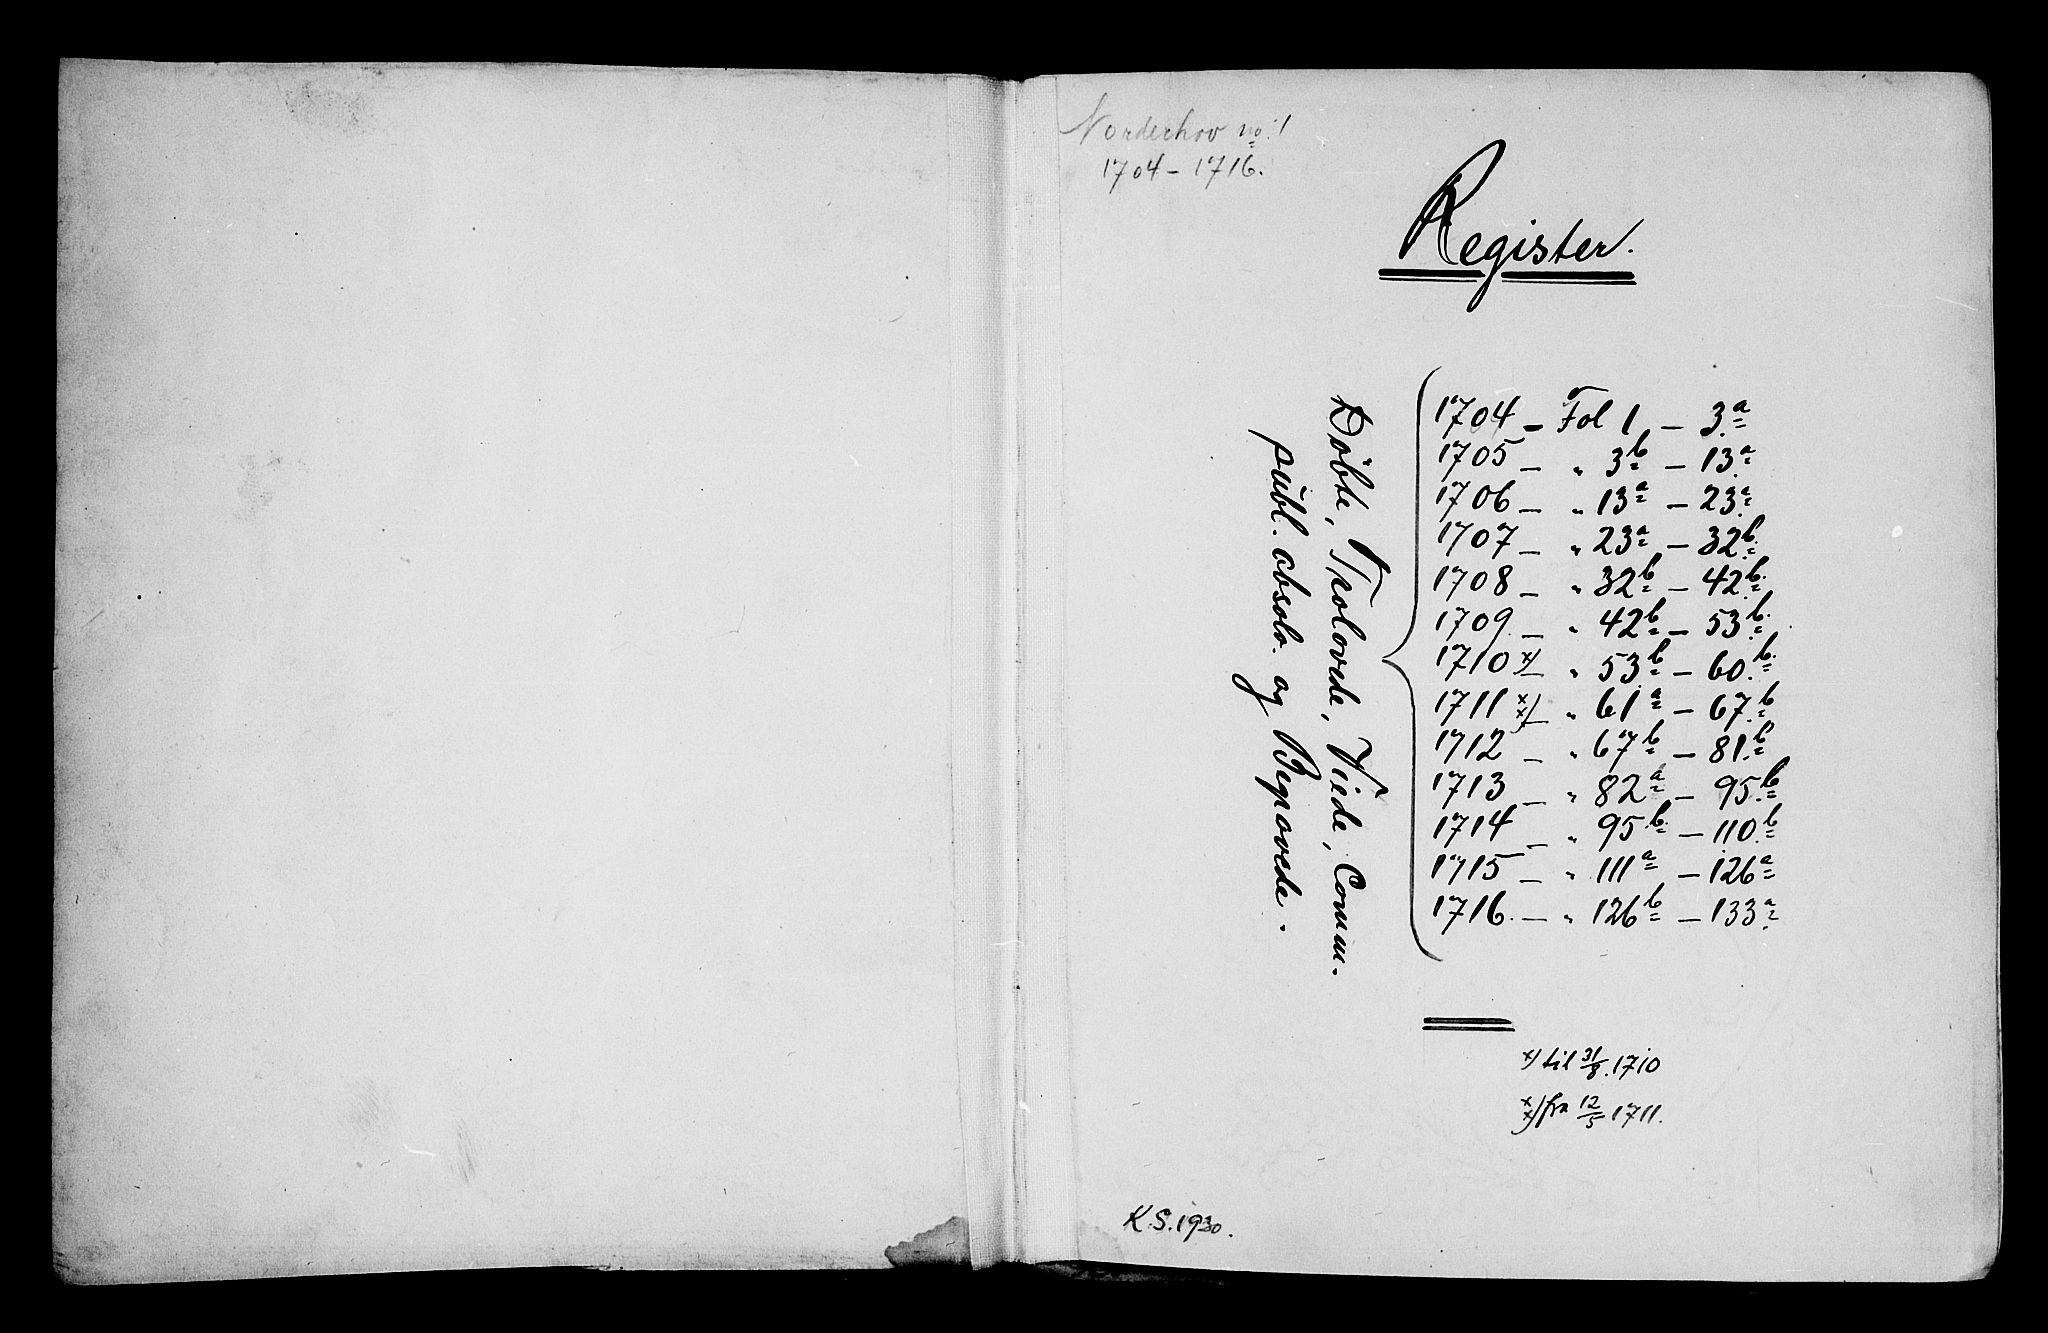 Norderhov no. 1
1704 - 1716.
Register.
Döbte, Trolovede, Viede, Comm.
publ. absolv. og Begravede.
1704 - Fol 1 - 3.a
1705 - " 3b - 13.a
1706 - " 13a - 23.a
1707 - " 23a - 32b.
1708 - " 32b - 42b.
1709 - " 42b - 53b.
1710 x) - " 53b - 60.b
1711 xx) - " 61a - 67.b
1712 - " 67b - 81.b
1713 - " 82a - 95.b
1714 - " 95b. - 110.b
1715 - " 111a - 126a
1716. - " 126b - 133a.
x) til 31/8. 1710
xx) fra 12/5 1711.
K.S. 1930.